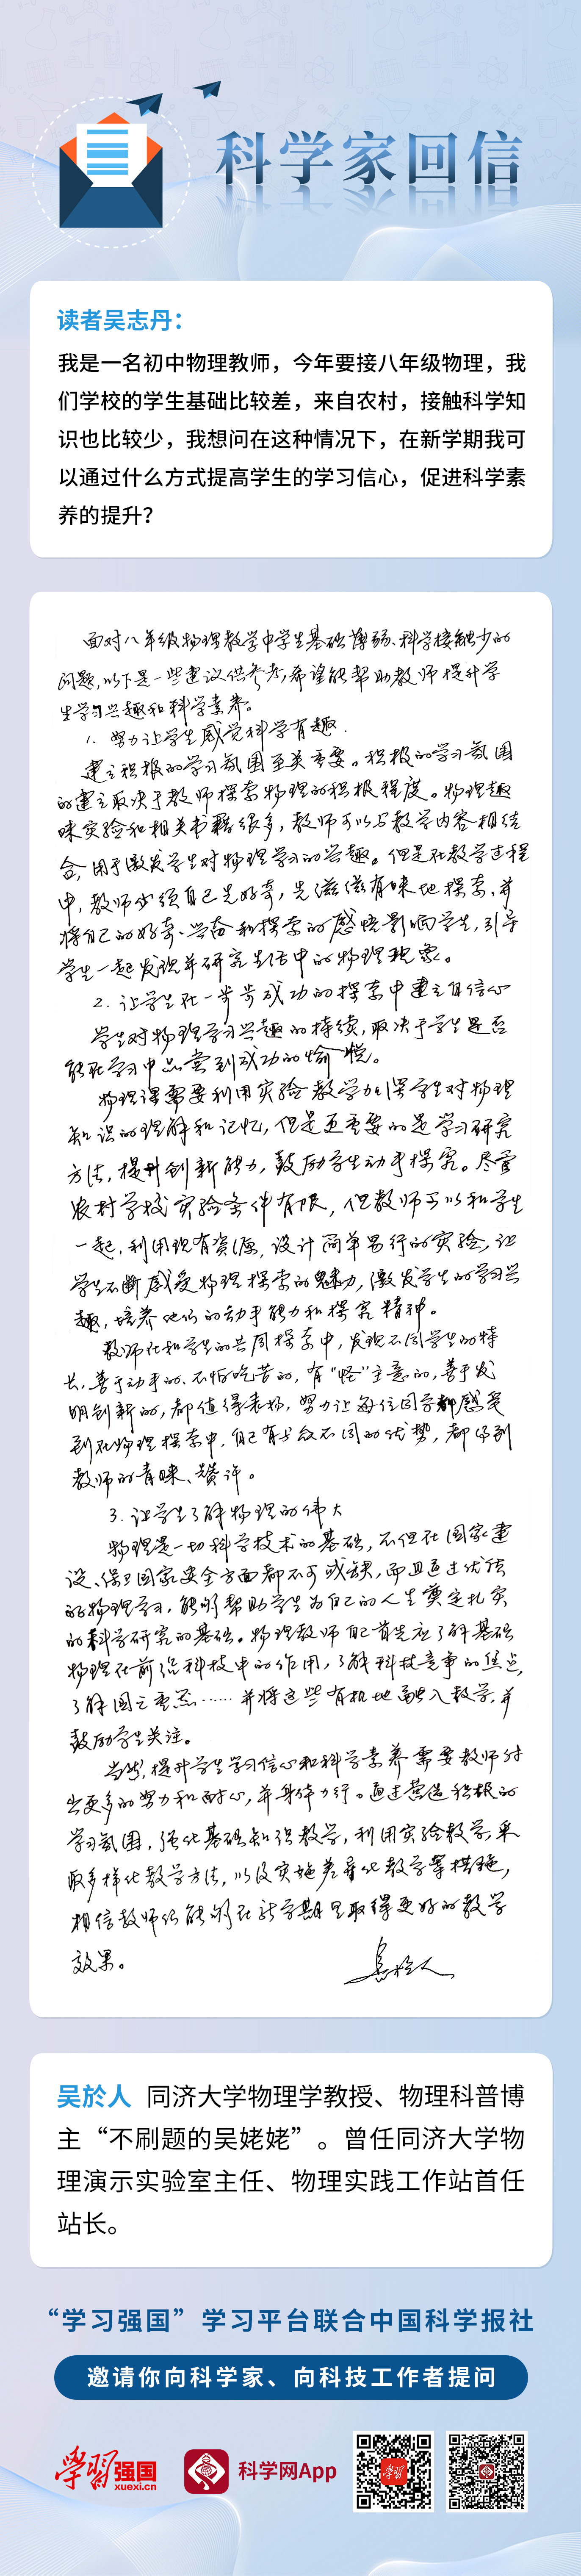 科学家回信
读者吴志丹：
我是一名初中物理教师，今年要接八年级物理，我
们学校的学生基础比较差，来自农村，接触科学知
识也比较少，我想问在这种情况下，在新学期我可
以通过什么方式提高学生的学习信心，促进科学素
养的提升？
面对八年级物理教学中学生基础薄弱、科学接触少的
问题，以下是一些建议供参考，希望能帮助教师提升学
生学习兴趣和科学素养。
1. 努力让学生感觉科学有趣.
建立积极的学习氛围至关重要。积极的学习氛围
的建立取决于教师探索物理的积极程度。物理趣
味实验和相关书籍很多，教师可以与教学内容相结
合，用于激发学生对物理学习的兴趣。但是在教学过程
中，教师必须自己先好奇，先滋滋有味地探索、并
将自己的好奇、兴奋和探索的感悟影响学生，引导
学生一起发现并研究生活中的物理现象。
2. 让学生在一步步成功的探索中建立自信心
学生对物理学习兴趣的持续，取决于学生是否
能在学习中品尝到成功的愉悦。
物理课需要利用实验教学加深学生对物理
知识的理解和记忆，但是更重要的是学习研究
方法，提升创新能力，鼓励学生动手探究。尽管
农村学校实验条件有限，但教师可以和学生
一起，利用现有资源，设计简单易行的实验，让
学生不断感受物理探索的魅力，激发学生的学习兴
趣，培养他们的动手能力和探究精神。
教师在和学生的共同探索中，发现不同学生的特
长，善于动手的、不怕吃苦的，有“怪”主意的，善于发
明创新的，都值得表扬，努力让每位同学都感受
到在物理探索中，自己有与众不同的优势，都得到
教师的青睐、赞许。
3. 让学生了解物理的伟大
物理是一切科学技术的基础，不但在国家建
设、保卫国家安全方面都不可或缺，而且通过优质
的物理学习，能够帮助学生为自己的人生奠定扎实
的科学研究的基础。物理教师自己首先应了解基础
物理在前沿科技中的作用，了解科技竞争的焦点，
了解国之重器……并将这些有机地融入教学，并
鼓励学生关注。
当然，提升学生学习信心和科学素养需要教师付
出更多的努力和耐心，并身体力行。通过营造积极的
学习氛围，强化基础知识教学，利用实验教学，采
取多样化教学方法，以及实施差异化教学等措施，
相信教师们能够在新学期里取得更好的教学
效果。
吴於人
吴於人 同济大学物理学教授、物理科普博
主“不刷题的吴姥姥”。曾任同济大学物
理演示实验室主任、物理实践工作站首任
站长。
“学习强国”学习平台联合中国科学报社
邀请你向科学家、向科技工作者提问
学习强国
xuexi.cn
科学网App